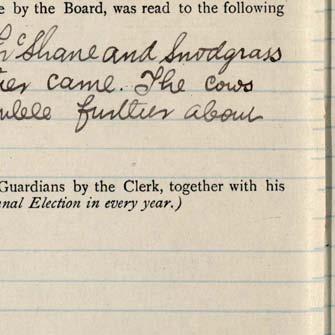 e by the Board, was read to the following
McShane and Snodgrass
came. The cows
further about
Guardians by the Clerk, together with his
nnal Election in every year.)